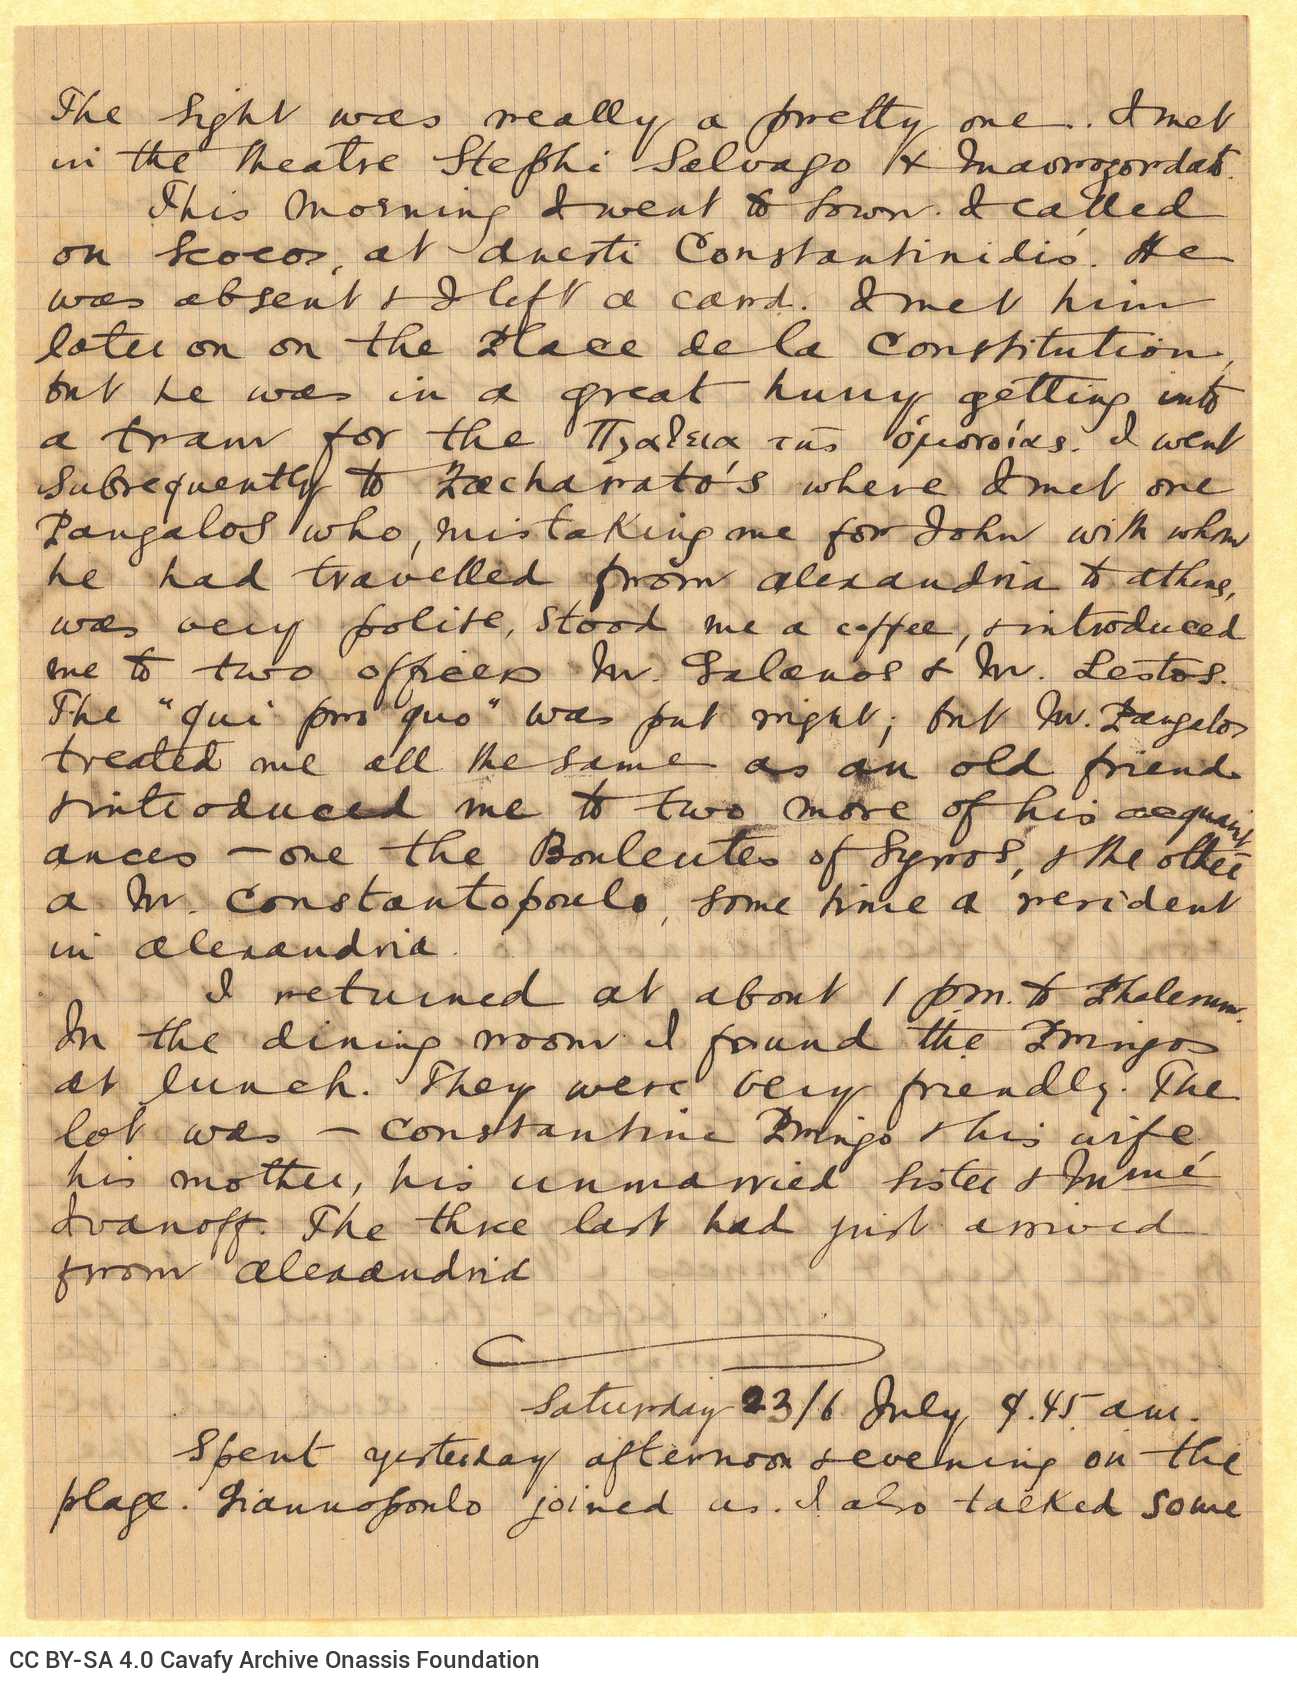 The sight was really a pretty one. I met
in the theatre Stephi Salvago & Mavrogordato.
This morning I went to town. I called
on Scocos, at Anesti Constantinidis. He
was absent & I left a card. I met him
later on on the Place de la Constitution,
but he was in a great hurry, getting into
a tram for the Πλατεια της ὁμονοίας. I went
subsequently to Zacharato's where I met one
Pangalos who, mistaking me for John with whom
he had travelled from Alexandria to Athens,
was very polite, stood me a coffee, & introduced
me to two officers M. Galanos & M. Lestos.
The "qui pro quo" was put right; but M. Pangalos
treated me all the same as an old friend
& introduced me to two more of his acquaint
ances — one the Bouleutes of Syros, & the other
a M. Constantopoulo, some time a resident
in Alexandria.
I returned at about 1 pm. to Phalerum.
In the dining room I found the Pringos
at lunch. They were very friendly. The
lot was — Constantine Pringo & his wife,
his mother, his unmarried sister & Mme
Ivanoff. The three last had just arrived
from Alexandria
Saturday 23/6 July 9.45 am.
Spent yesterday afternoon & evening on the
plage. Giannopoulo joined us. I also talked some
CC BY-SA 4.0 Cavafy Archive Onassis Foundation